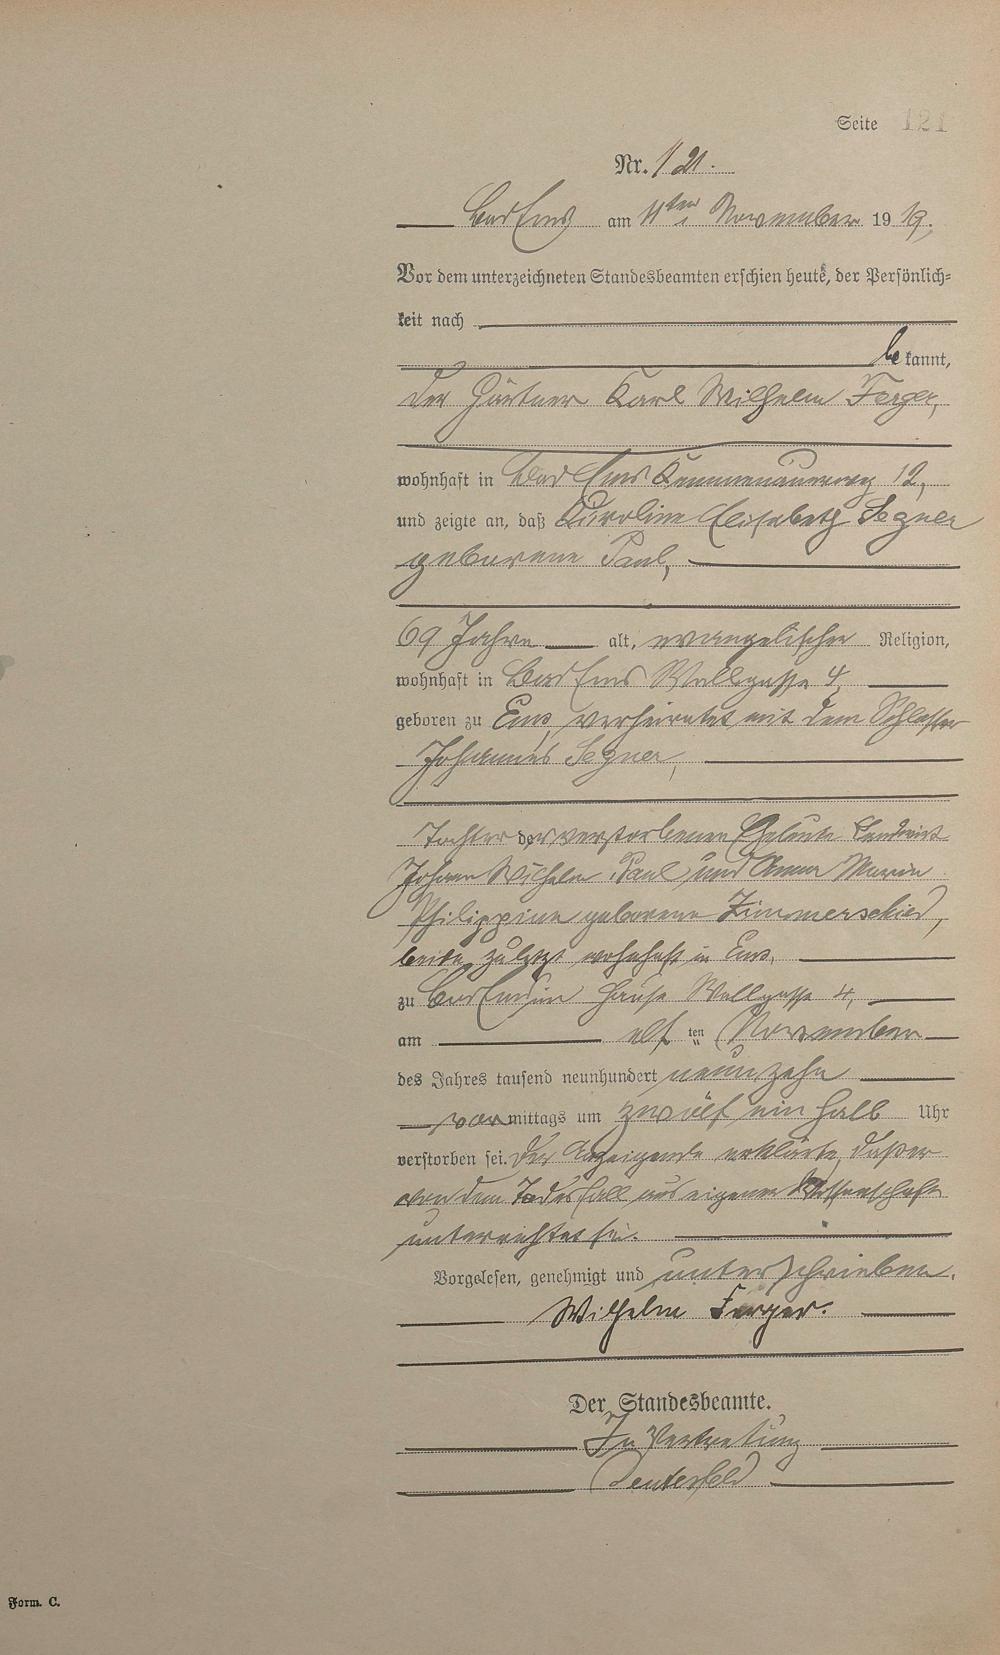 Seite 121
Nr. 121.
Bad Ems am 11ten November 1919,
Vor dem unterzeichneten Standesbeamten erschien heute, der Persönlich-
keit nach
bekannt,
der Gärtner Karl Wilhelm Ferger,
wohnhaft in Bad Ems Kemmenauerweg 12,
und zeigte an, daß Karoline Elisabeth Segner
geborene Paul,
69 Jahre alt, evangelischer Religion,
wohnhaft in Bad Ems Wallgasse 4,
geboren zu Ems, verheiratet mit dem Schlosser
Johannes Segner,
Tochter der verstorbenen Eheleute Landwirt
Johann Wilhelm Paul und Anna Maria
Philippine geborene Zimmerschied,
beide zuletzt wohnhaft in Ems,
zu Bad Ems im Hause Wallgasse 4,
am elf ten November
des Jahres tausend neunhundert neunzehn
vormittags um zwölf ein halb Uhr
verstorben sei. Der Anzeigende erklärte, daß er
von dem Todesfall aus eigener Wissenschaft
unterrichtet sei.
Vorgelesen, genehmigt und unterschrieben.
Wilhelm Ferger.
Der Standesbeamte.
In Vertretung
Form. C.